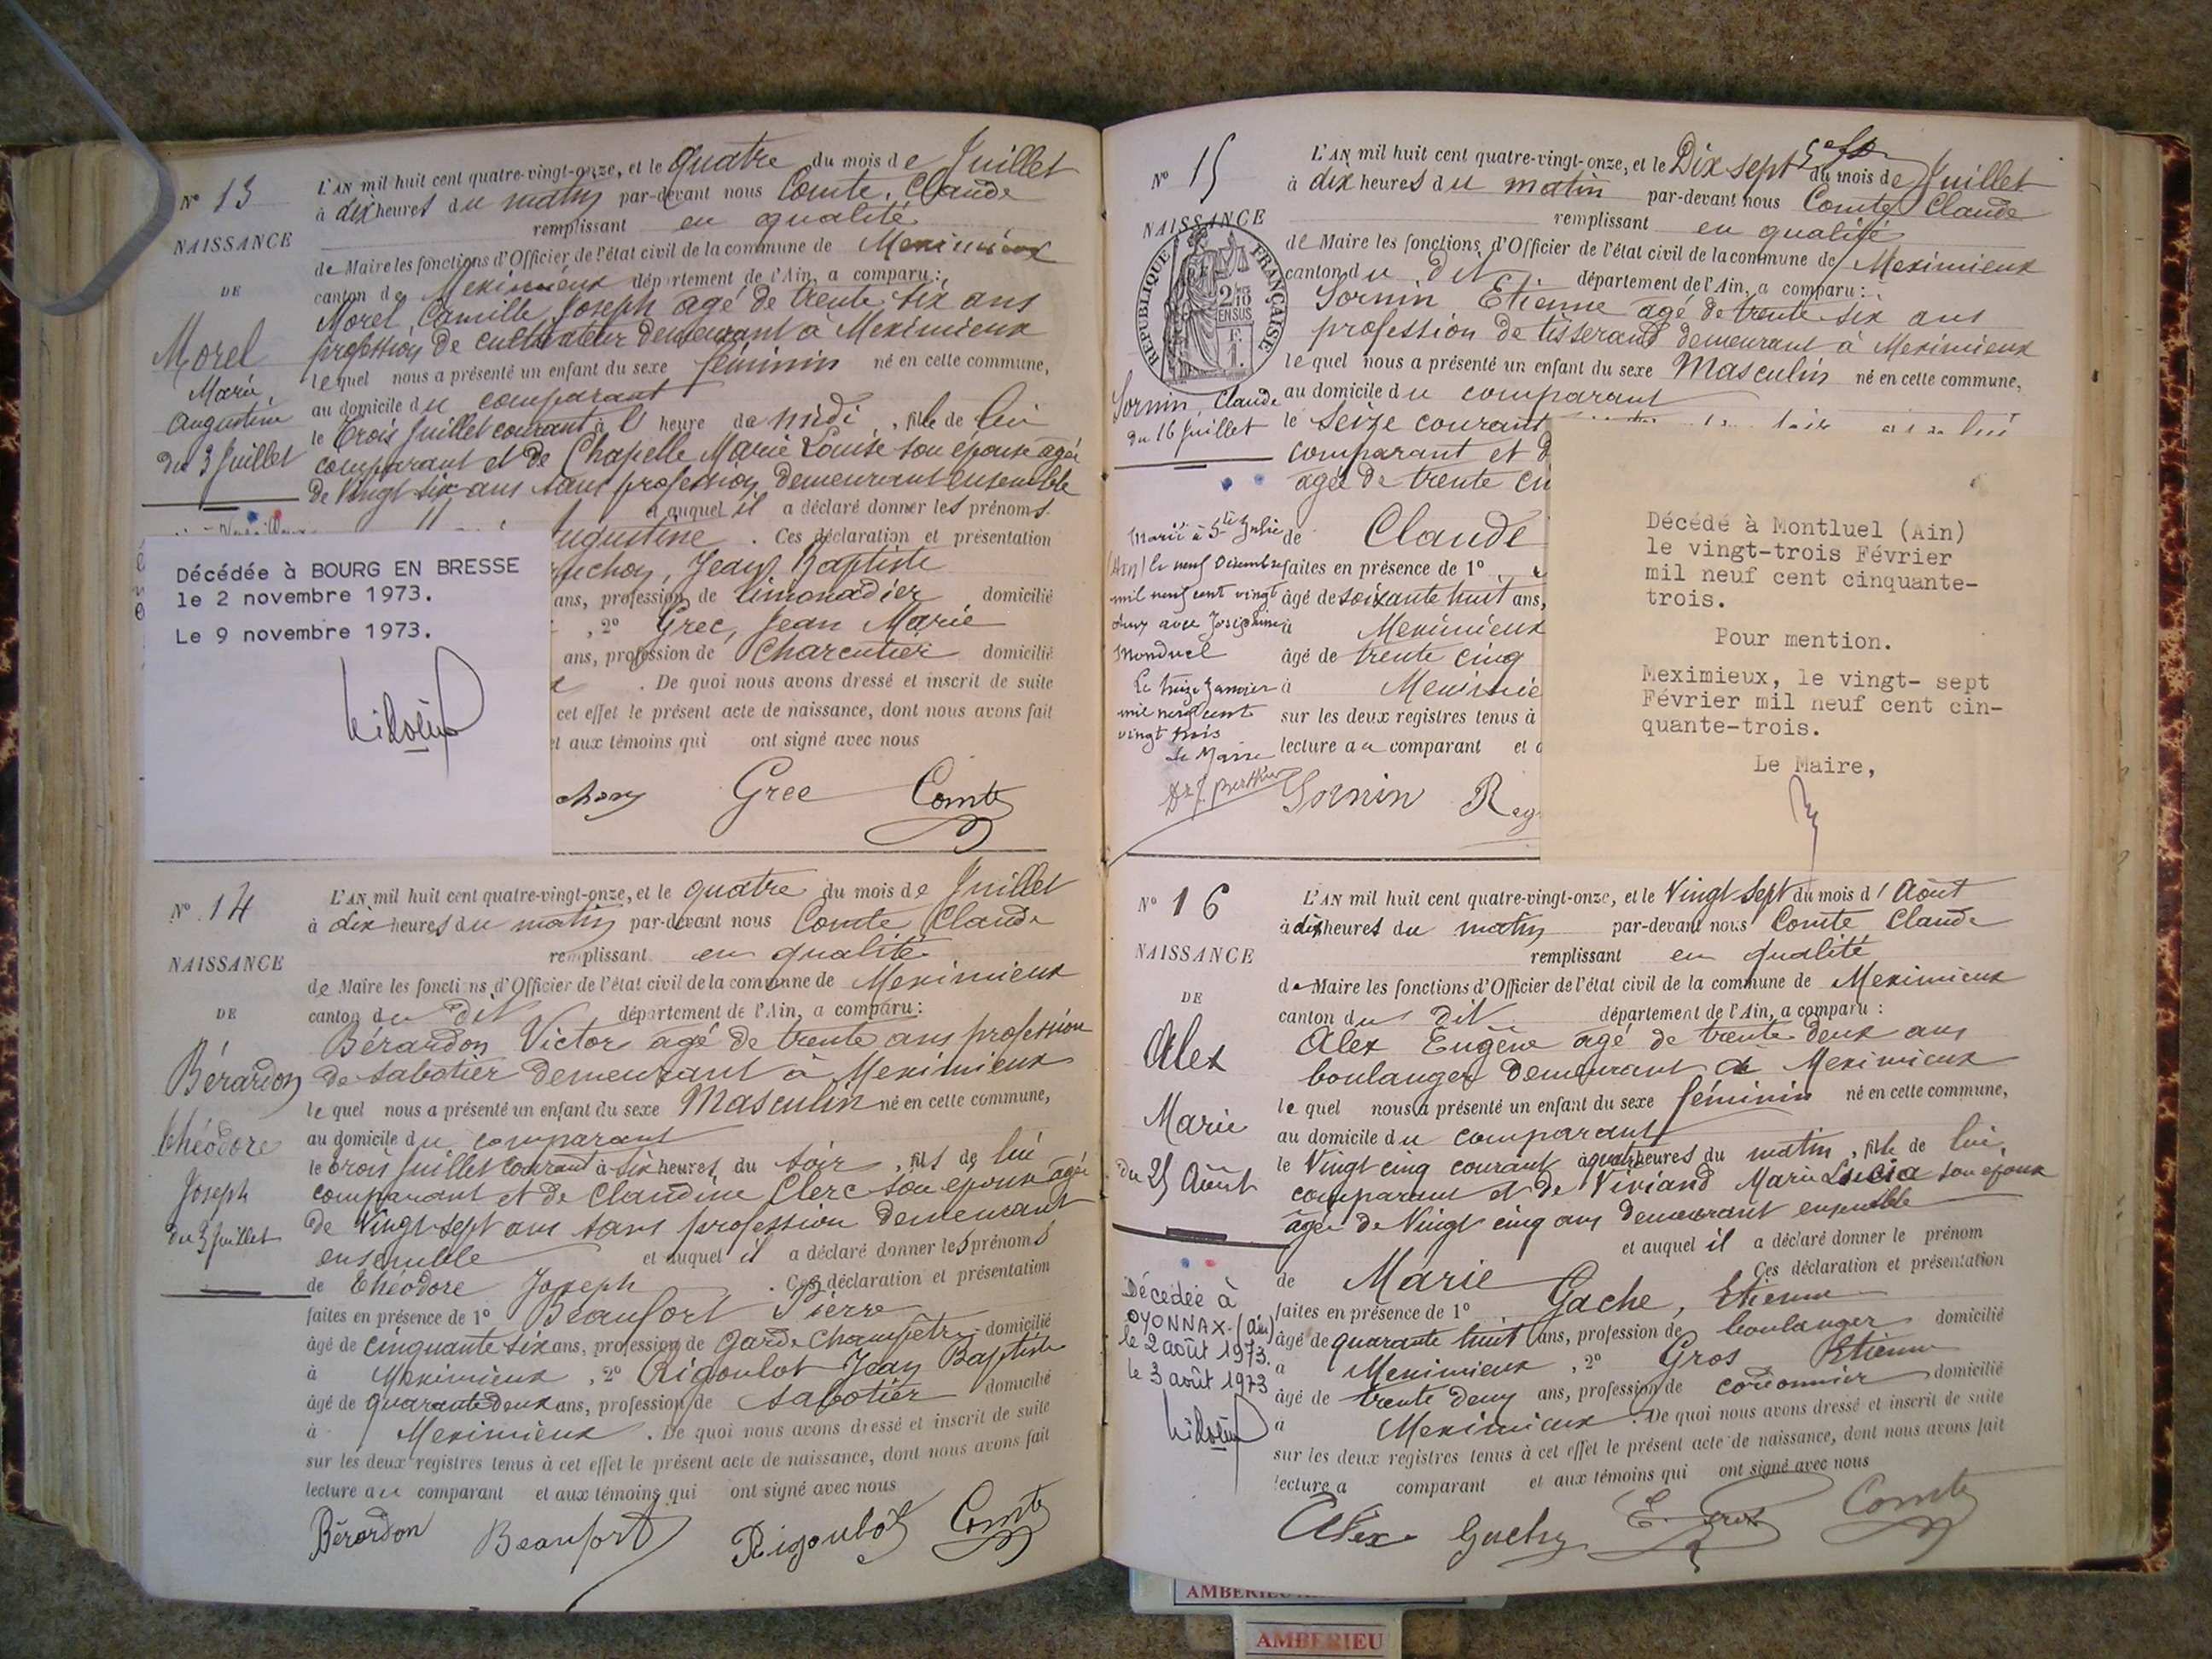 N° 13
NAISSANCE
DE
Morel
Marie
Augustine
du 3 Juillet
L'AN mil huit cent quatre-vingt-onze, et le quatre du mois de Juillet
à dix heures du matin par-devant nous Comte, Claude
remplissant en qualité
de Maire les fonctions d'Officier de l'état civil de la commune de Meximieux
canton de Meximieux département de l'Ain, a comparu :
Morel, Camille Joseph agé de trente six ans
profession de cultivateur demeurant à Meximieux
lequel nous a présenté un enfant du sexe féminin né en cette commune,
au domicile du comparant
le trois Juillet courant à l heure de midi, fille de lui
comparant et de Chapelle Marie Louise son épouse agée
de vingt six ans sans profession demeurant ensemble
et auquel il a déclaré donner les prénoms
ugustine. Ces déclaration et présentation
Jean Baptiste
ans, profession de limonadier domicilié
, 2° Grec, Jean Marie
ans, profession de Charcutier domicilié
. De quoi nous avons dressé et inscrit de suite
cet effet le présent acte de naissance, dont nous avons fait
et aux témoins qui ont signé avec nous
Grec Comte
Décédée à BOURG EN BRESSE
le 2 novembre 1973.
Le 9 novembre 1973.
N° 14
NAISSANCE
DE
Bérardon
théodore
Joseph
du 3 Juillet
L'AN mil huit cent quatre-vingt-onze, et le quatre du mois de Juillet
à dix heures du matin par-devant nous Comte Claude
remplissant en qualité
de Maire les fonctions d'Officier de l'état civil de la commune de Meximieux
canton du dit département de l'Ain, a comparu :
Bérardon Victor agé de trente ans profession
de sabotier demeurant à Meximieux
lequel nous a présenté un enfant du sexe Masculin né en cette commune,
au domicile du comparant
le trois Juillet courant à six heures du soir, fils de lui
comparant et de Claudine Clerc son épouse agée
de vingt sept ans sans profession demeurant
ensemble et auquel il a déclaré donner les prénoms
de théodore Joseph. Ces déclaration et présentation
faites en présence de 1° Beaufort Pierre
âgé de cinquante six ans, profession de garde Champêtre domicilié
à Meximieux, 2° Rigoulot Jean Baptiste
âgé de quarante deux ans, profession de sabotier domicilié
à Meximieux. De quoi nous avons dressé et inscrit de suite
sur les deux registres tenus à cet effet le présent acte de naissance, dont nous avons fait
lecture au comparant et aux témoins qui ont signé avec nous
Bérardon Beaufort Rigoulot Comte
N° 15
NAISSANCE
RÉPUBLIQUE FRANÇAISE
2/10
EN SUS
F.
1.
Sornin, Claude
du 16 Juillet
Marié à Ste Julie
(Ain) le neuf Décembre
mil neuf cent vingt
deux avec Joséphine
Monduel
Le treize Janvier
mil neuf cent
vingt trois
Le Maire
L'AN mil huit cent quatre-vingt-onze, et le Dix sept du mois de Juillet
à dix heures du matin par-devant nous Comte Claude
remplissant en qualité
de Maire les fonctions d'Officier de l'état civil de la commune de Meximieux
canton du dit département de l'Ain, a comparu :
Sornin Etienne agé de trente six ans
profession de tisserand demeurant à Meximieux
lequel nous a présenté un enfant du sexe Masculin né en cette commune,
au domicile du comparant
le seize courant
comparant et d
agée de trente cin
de Claude
faites en présence de 1°
âgé de soixante huit ans,
à Meximieux
âgé de trente cinq
à Meximie
sur les deux registres tenus à
lecture au comparant et
Sornin Rey
Décédé à Montluel (Ain)
le vingt-trois Février
mil neuf cent cinquante-
trois.
Pour mention.
Meximieux, le vingt- sept
Février mil neuf cent cin-
quante-trois.
Le Maire,
N° 16
NAISSANCE
DE
Alex
Marie
du 25 Août
Décédée à
OYONNAX (Ain)
le 2 août 1973.
le 3 août 1973
L'AN mil huit cent quatre-vingt-onze, et le Vingt sept du mois d'Août
à dix heures du matin par-devant nous Comte Claude
remplissant en qualité
de Maire les fonctions d'Officier de l'état civil de la commune de Meximieux
canton du dit département de l'Ain, a comparu :
Alex Eugène agé de trente deux ans
boulanger demeurant à Meximieux
lequel nous a présenté un enfant du sexe féminin né en cette commune,
au domicile du comparant
le Vingt cinq courant à quatre heures du matin, fille de lui
comparant et de Viviand Marie Lucia son épouse
agée de Vingt cinq ans demeurant ensemble
et auquel il a déclaré donner le prénom
de Marie Ces déclaration et présentation
faites en présence de 1° Gache, Etienne
âgé de quarante huit ans, profession de boulanger domicilié
à Meximieux, 2° Gros Etienne
âgé de trente deux ans, profession de cordonnier domicilié
à Meximieux. De quoi nous avons dressé et inscrit de suite
sur les deux registres tenus à cet effet le présent acte de naissance, dont nous avons fait
lecture a comparant et aux témoins qui ont signé avec nous
Alex Gache E. Gros Comte
AMBERIEU